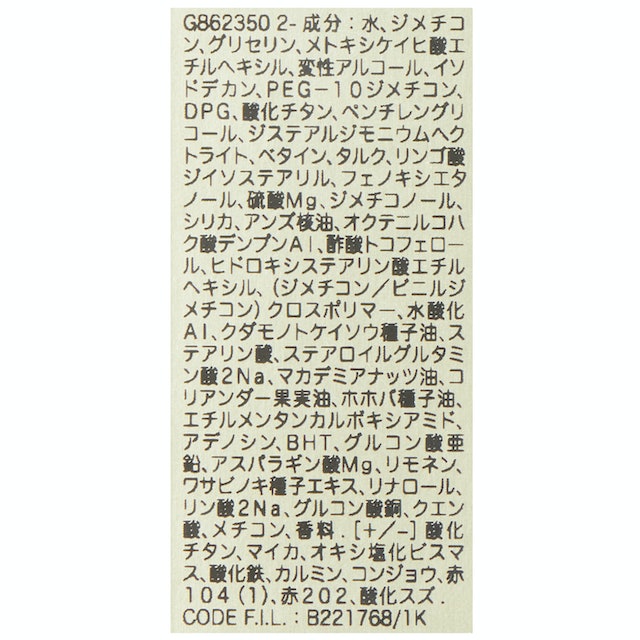 G862350 2- 成分：水、ジメチコ
ン、グリセリン、メトキシケイヒ酸エ
チルヘキシル、変性アルコール、イソ
ドデカン、PEG-10ジメチコン、
DPG、酸化チタン、ペンチレングリ
コール、ジステアルジモニウムヘク
トライト、ベタイン、タルク、リンゴ酸
ジイソステアリル、フェノキシエタ
ノール、硫酸Mg、ジメチコノール、
シリカ、アンズ核油、オクテニルコハ
ク酸デンプンAl、酢酸トコフェロー
ル、ヒドロキシステアリン酸エチル
ヘキシル、（ジメチコン／ビニルジ
メチコン）クロスポリマー、水酸化
Al、クダモノトケイソウ種子油、ス
テアリン酸、ステアロイルグルタミ
ン酸2Na、マカデミアナッツ油、コ
リアンダー果実油、ホホバ種子油、
エチルメンタンカルボキシアミド、
アデノシン、BHT、グルコン酸亜
鉛、アスパラギン酸Mg、リモネン、
ワサビノキ種子エキス、リナロール、
リン酸2Na、グルコン酸銅、クエン
酸、メチコン、香料．[+/-] 酸化
チタン、マイカ、オキシ塩化ビスマ
ス、酸化鉄、カルミン、コンジョウ、赤
104（1）、赤202、酸化スズ．
CODE F.I.L. : B221768/1K